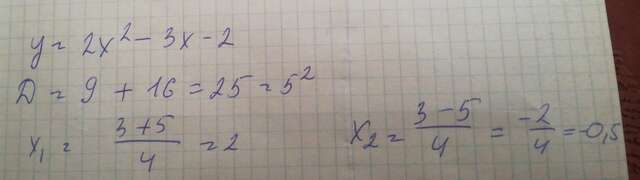 y = 2x² - 3x - 2
D = 9 + 16 = 25 = 5²
x₁ = (3+5)/4 = 2
x₂ = (3-5)/4 = -2/4 = -0,5